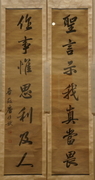 聖言示我真當畏
作事惟思利及人